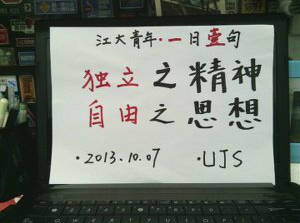 江大青年·一日壹句
独立之精神
自由之思想
·2013.10.07 ·UJS